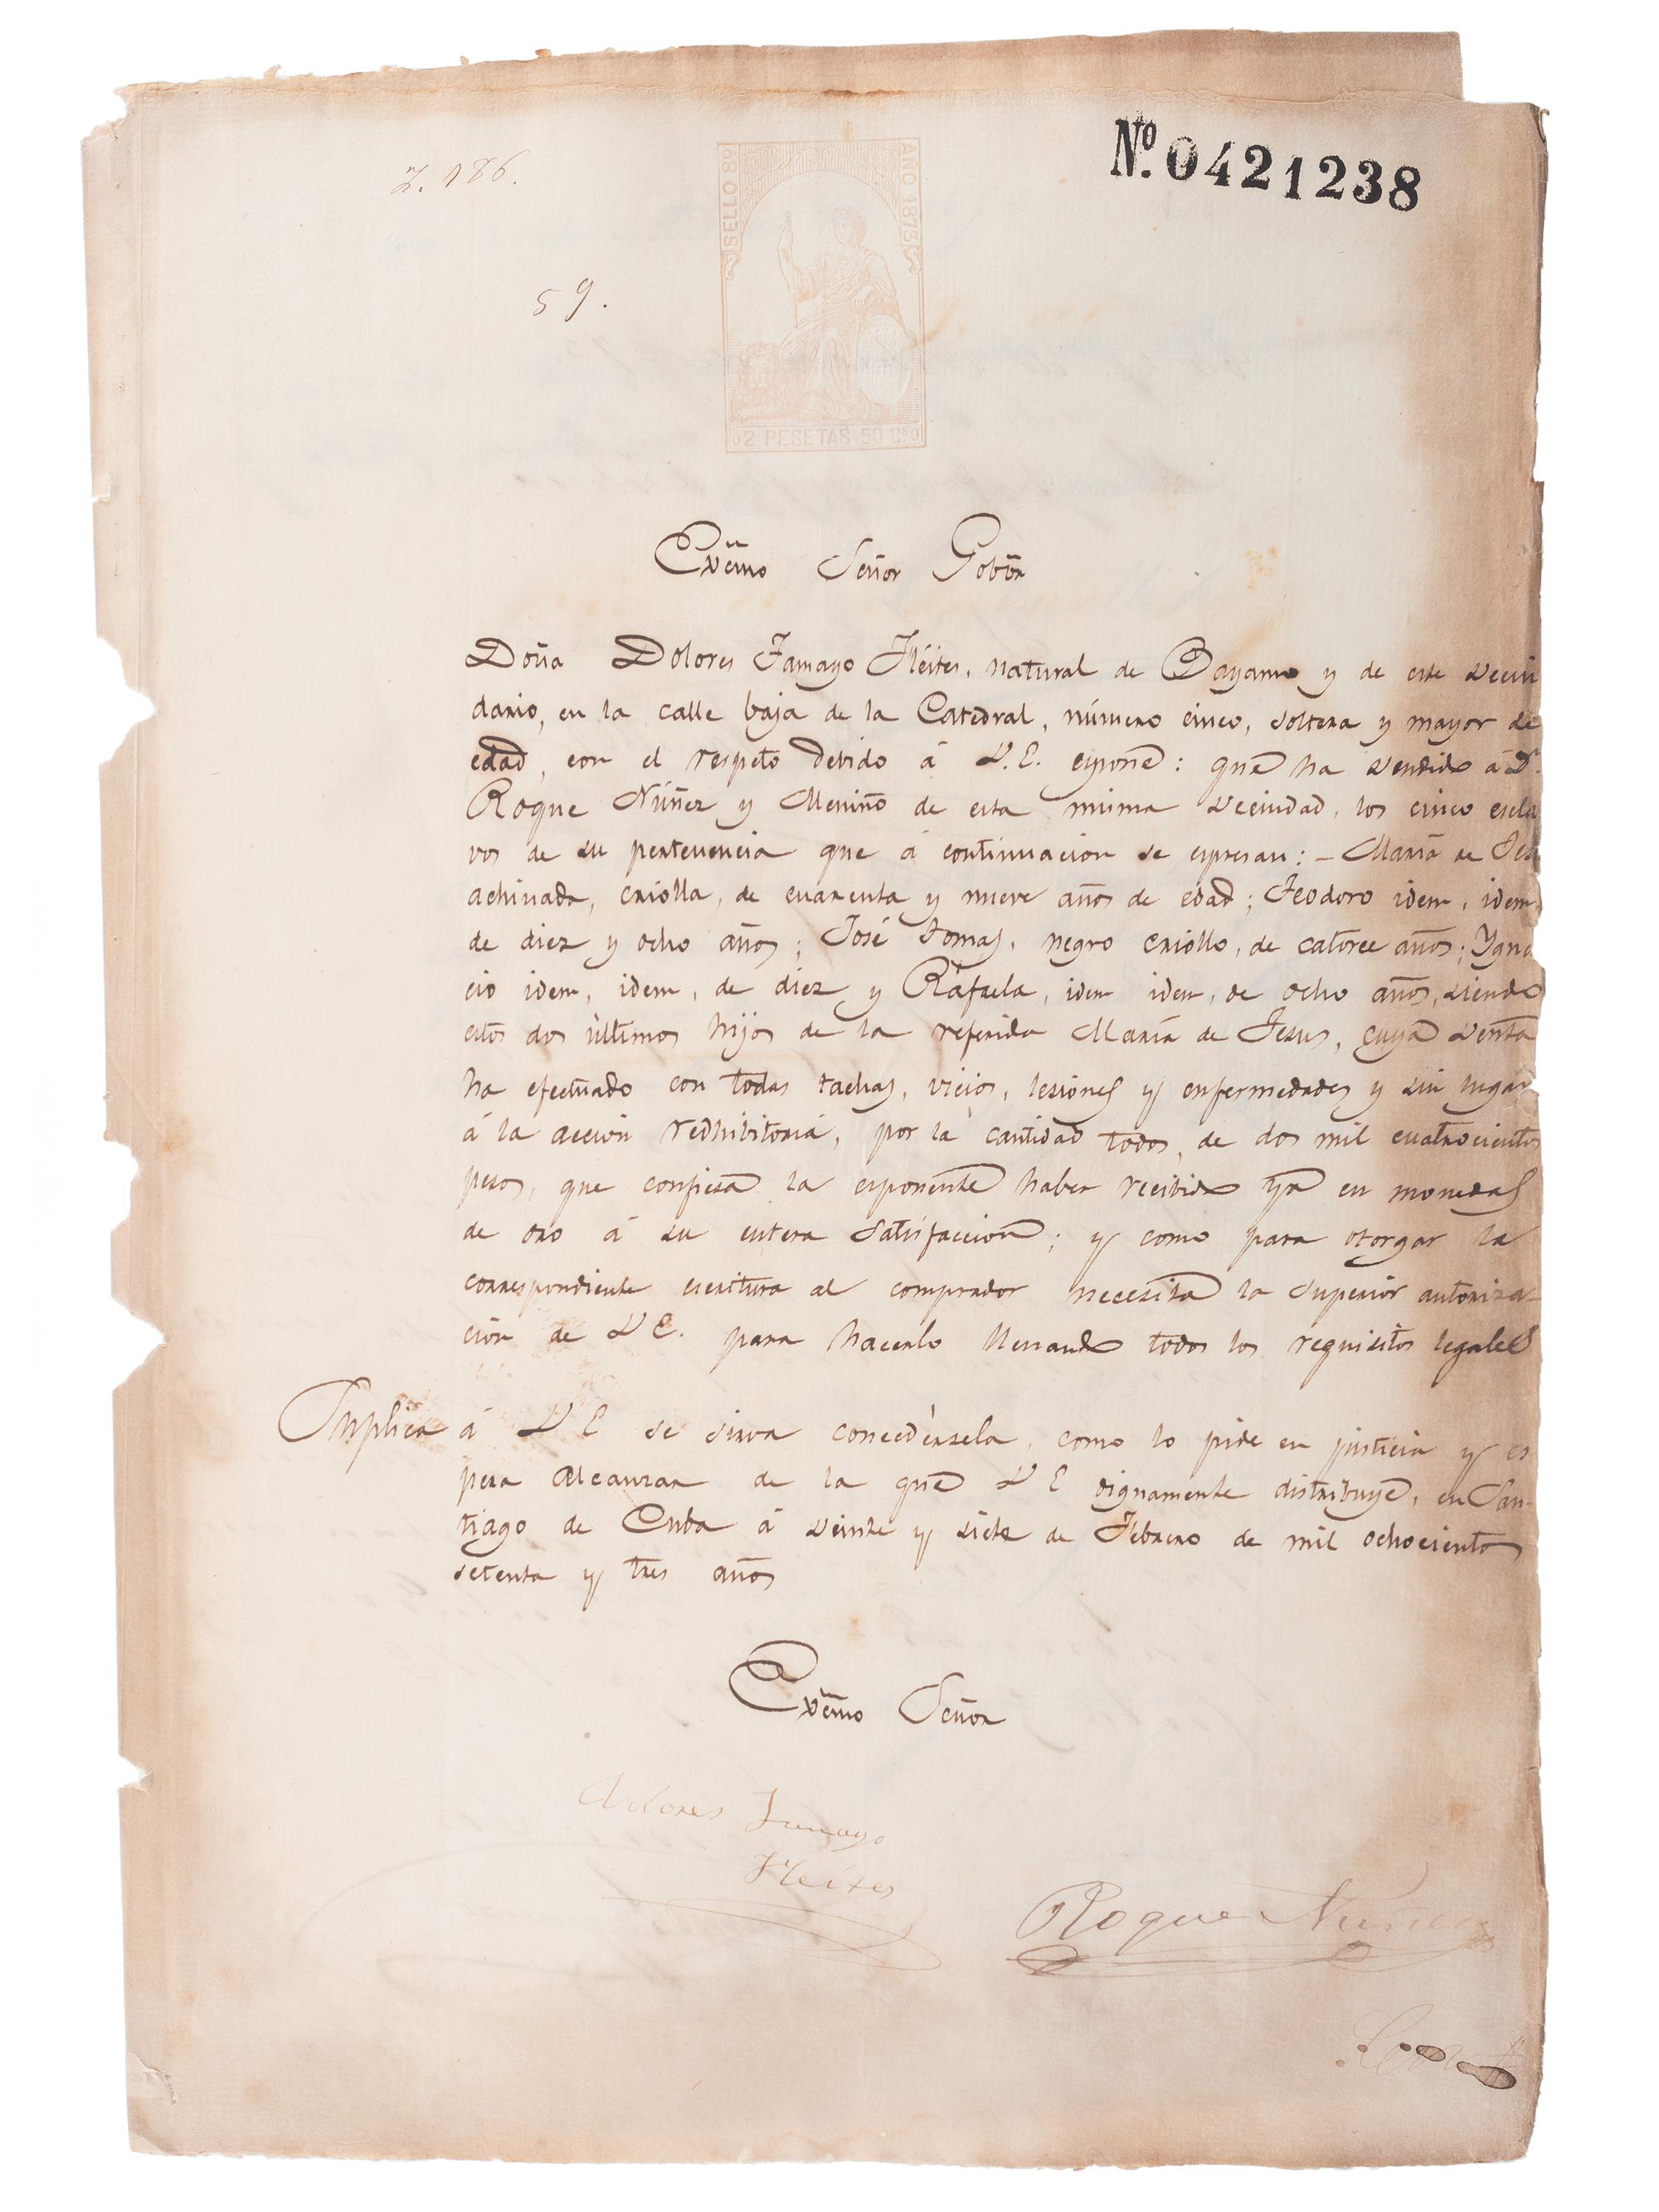 Z. 186.
Nº. 0421238
SELLO 8º
AÑO 1873
59.
2 PESETAS 50 Cs
Exc̃mo Señor Gobor
Doña Dolores Tamayo Fléites, natural de Bayamo y de este vecin
dario, en la calle baja de la Catedral, número cinco, soltera y mayor de
edad, con el respeto debido á V.E. espone: que ha vendido á Dn
Roque Núñez y Meriño de esta misma veciudad, los cinco escla
vos de su pertenencia que á continuacion se espresan: - María de Jesu
achinada, criolla, de cuarenta y nueve años de edad; Teodoro idem, idem,
de diez y ocho años; José Tomas, negro criollo, de catorce años; Ygna
cio idem, idem, de diez y Rafaela, idem idem, de ocho años, siendo
estos dos últimos hijos de la referida María de Jesus, cuya venta
ha efectuado con todas tachas, vicios, lesiones y enfermedades y sin lugar
á la accion redhibitoria, por la cantidad todos, de dos mil cuatrocientos
pesos, que confiesa la esponente haber recibido ya en monedas
de oro á su entera satisfaccion; y como para otorgar la
correspondiente escritura al comprador necesita la superior autoriza-
cion de V E. para hacerlo llenando todos los requisitos legales
Suplica á V E se sirva concedérsela, como lo pide en justicia y es
pera alcanzar de la que V E dignamente distribuye, en San-
tiago de Cuba á veinte y siete de Febrero de mil ochocientos
setenta y tres años
Exc̃mo Señor
Dolores Tamayo
Fleites
Roque Nuñez